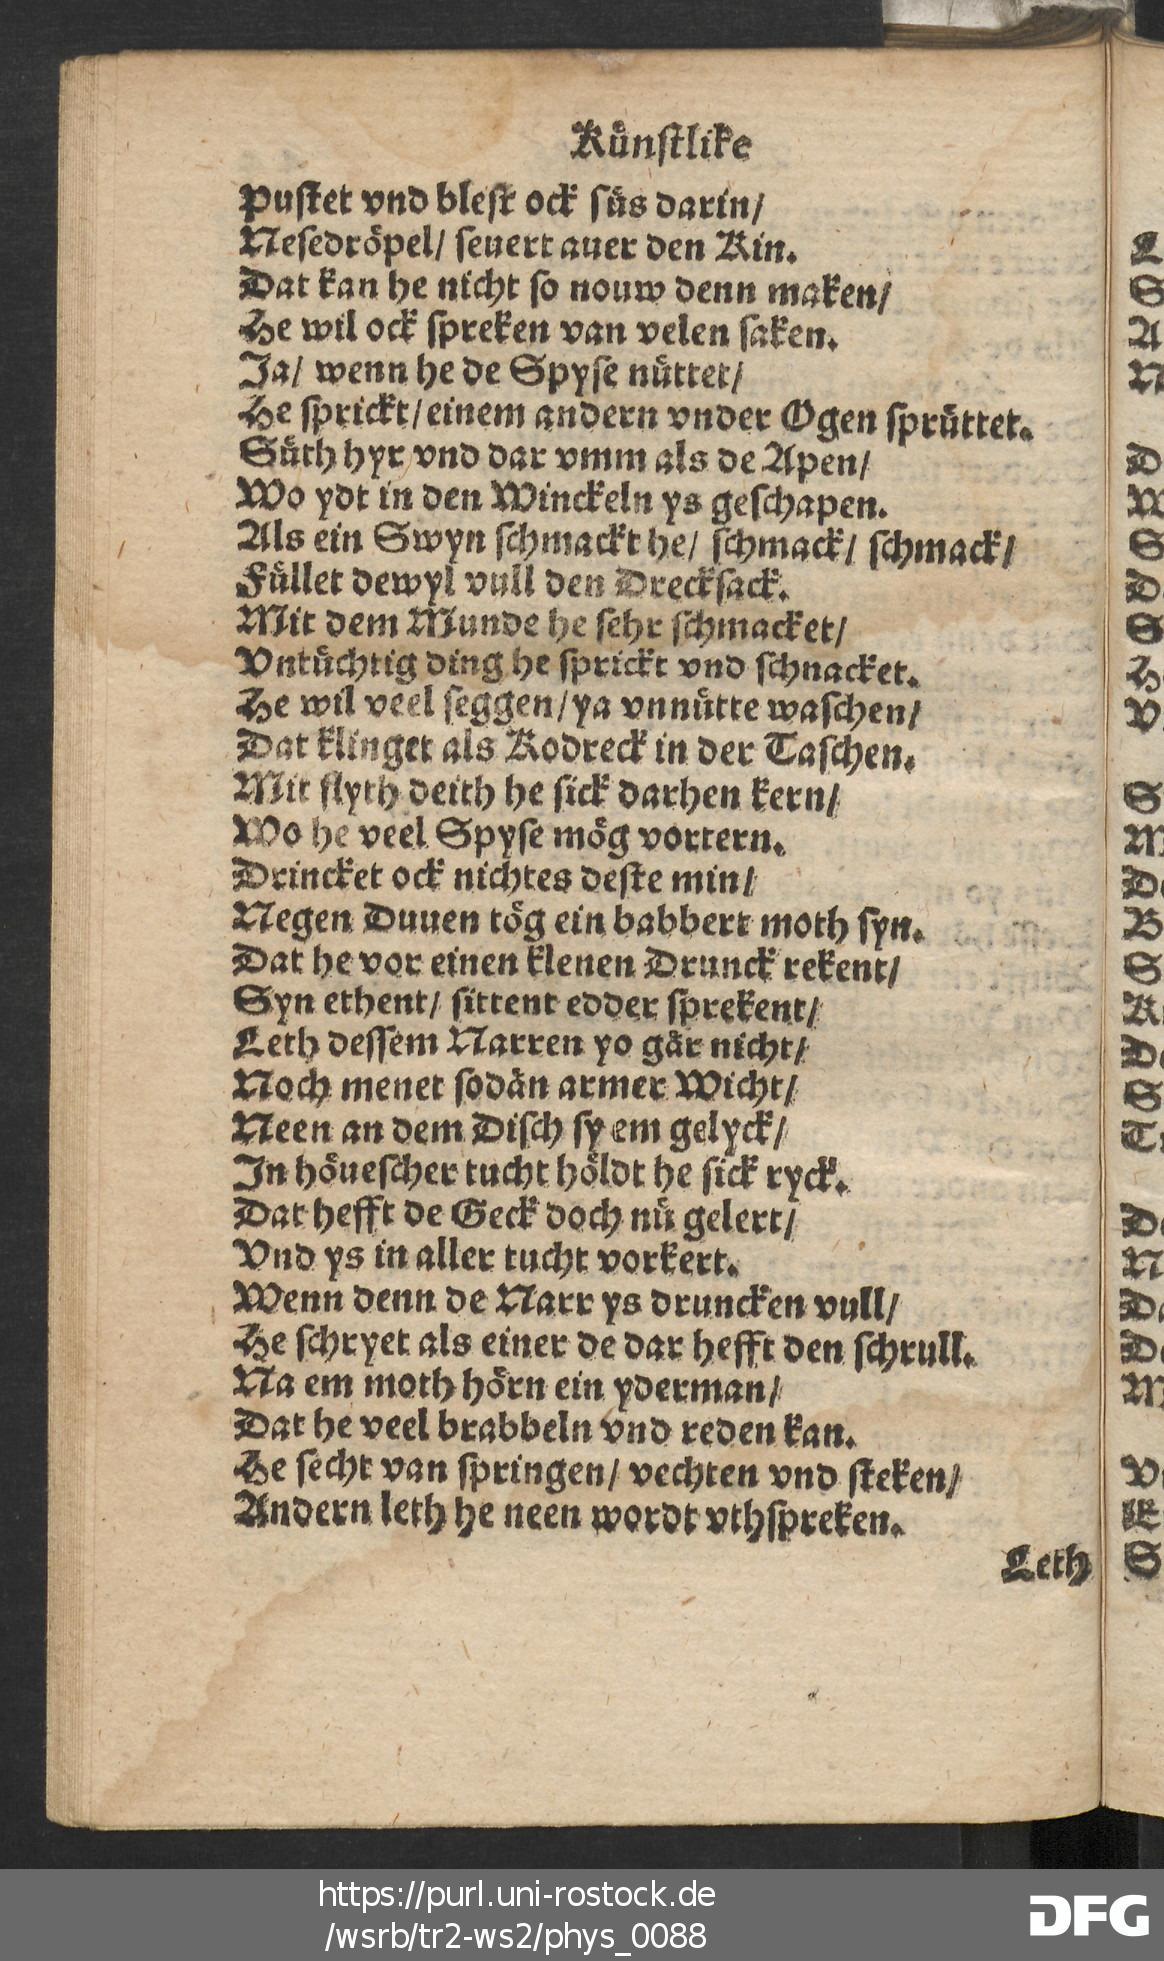 Kuͤnſtlike
Puſtet vnd bleſt ock ſuͤs darin/
Neſedroͤpel/ ſeuert auer den Kin.
Dat kan he nicht ſo nouw denn maken/
He wil ock ſpreken van velen ſaken.
Ja/ wenn he de Spyſe nuͤttet/
He sprickt/ einem andern vnder Ogen ſpruͤttet.
Suͤth hyr vnd dar vmm als de Apen/
Wo ydt in den Winckeln ys geſchapen.
Als ein Swyn ſchmackt he/ ſchmack/ ſchmack/
Fuͤllet dewyl vull den Dreckſack.
Mit dem Munde he ſehr ſchmacket/
Vntuͤchtig ding he ſprickt vnd ſchnacket.
He wil veel ſeggen/ ya vnnuͤtte waſchen/
Dat klinget als Kodreck in der Taſchen.
Mit flyth deith he ſick darhen kern/
Wo he veel Spyſe moͤg vortern.
Drincket ock nichtes deſte min/
Negen Duuen toͤg ein babbert moth ſyn.
Dat he vor einen klenen Drunck rekent/
Syn ethent/ ſittent edder ſprekent/
Leth deſſem Narren yo gaͤr nicht/
Noch menet ſodaͤn armer Wicht/
Neen an dem Diſch ſy em gelyck/
In hoͤueſcher tucht hoͤldt he ſick ryck.
Dat hefft de Geck doch nuͤ gelert/
Vnd ys in aller tucht vorkert.
Wenn denn de Narr ys druncken vull/
He ſchryet als einer de dar hefft den ſchrull.
Na em moth hoͤrn ein yderman/
Dat he veel brabbeln vnd reden kan.
He ſecht van ſpringen/ vechten vnd ſteken/
Andern leth he neen wordt vthſpreken.
Leth
https://purl.uni-rostock.de
/wsrb/tr2-ws2/phys_0088
DFG